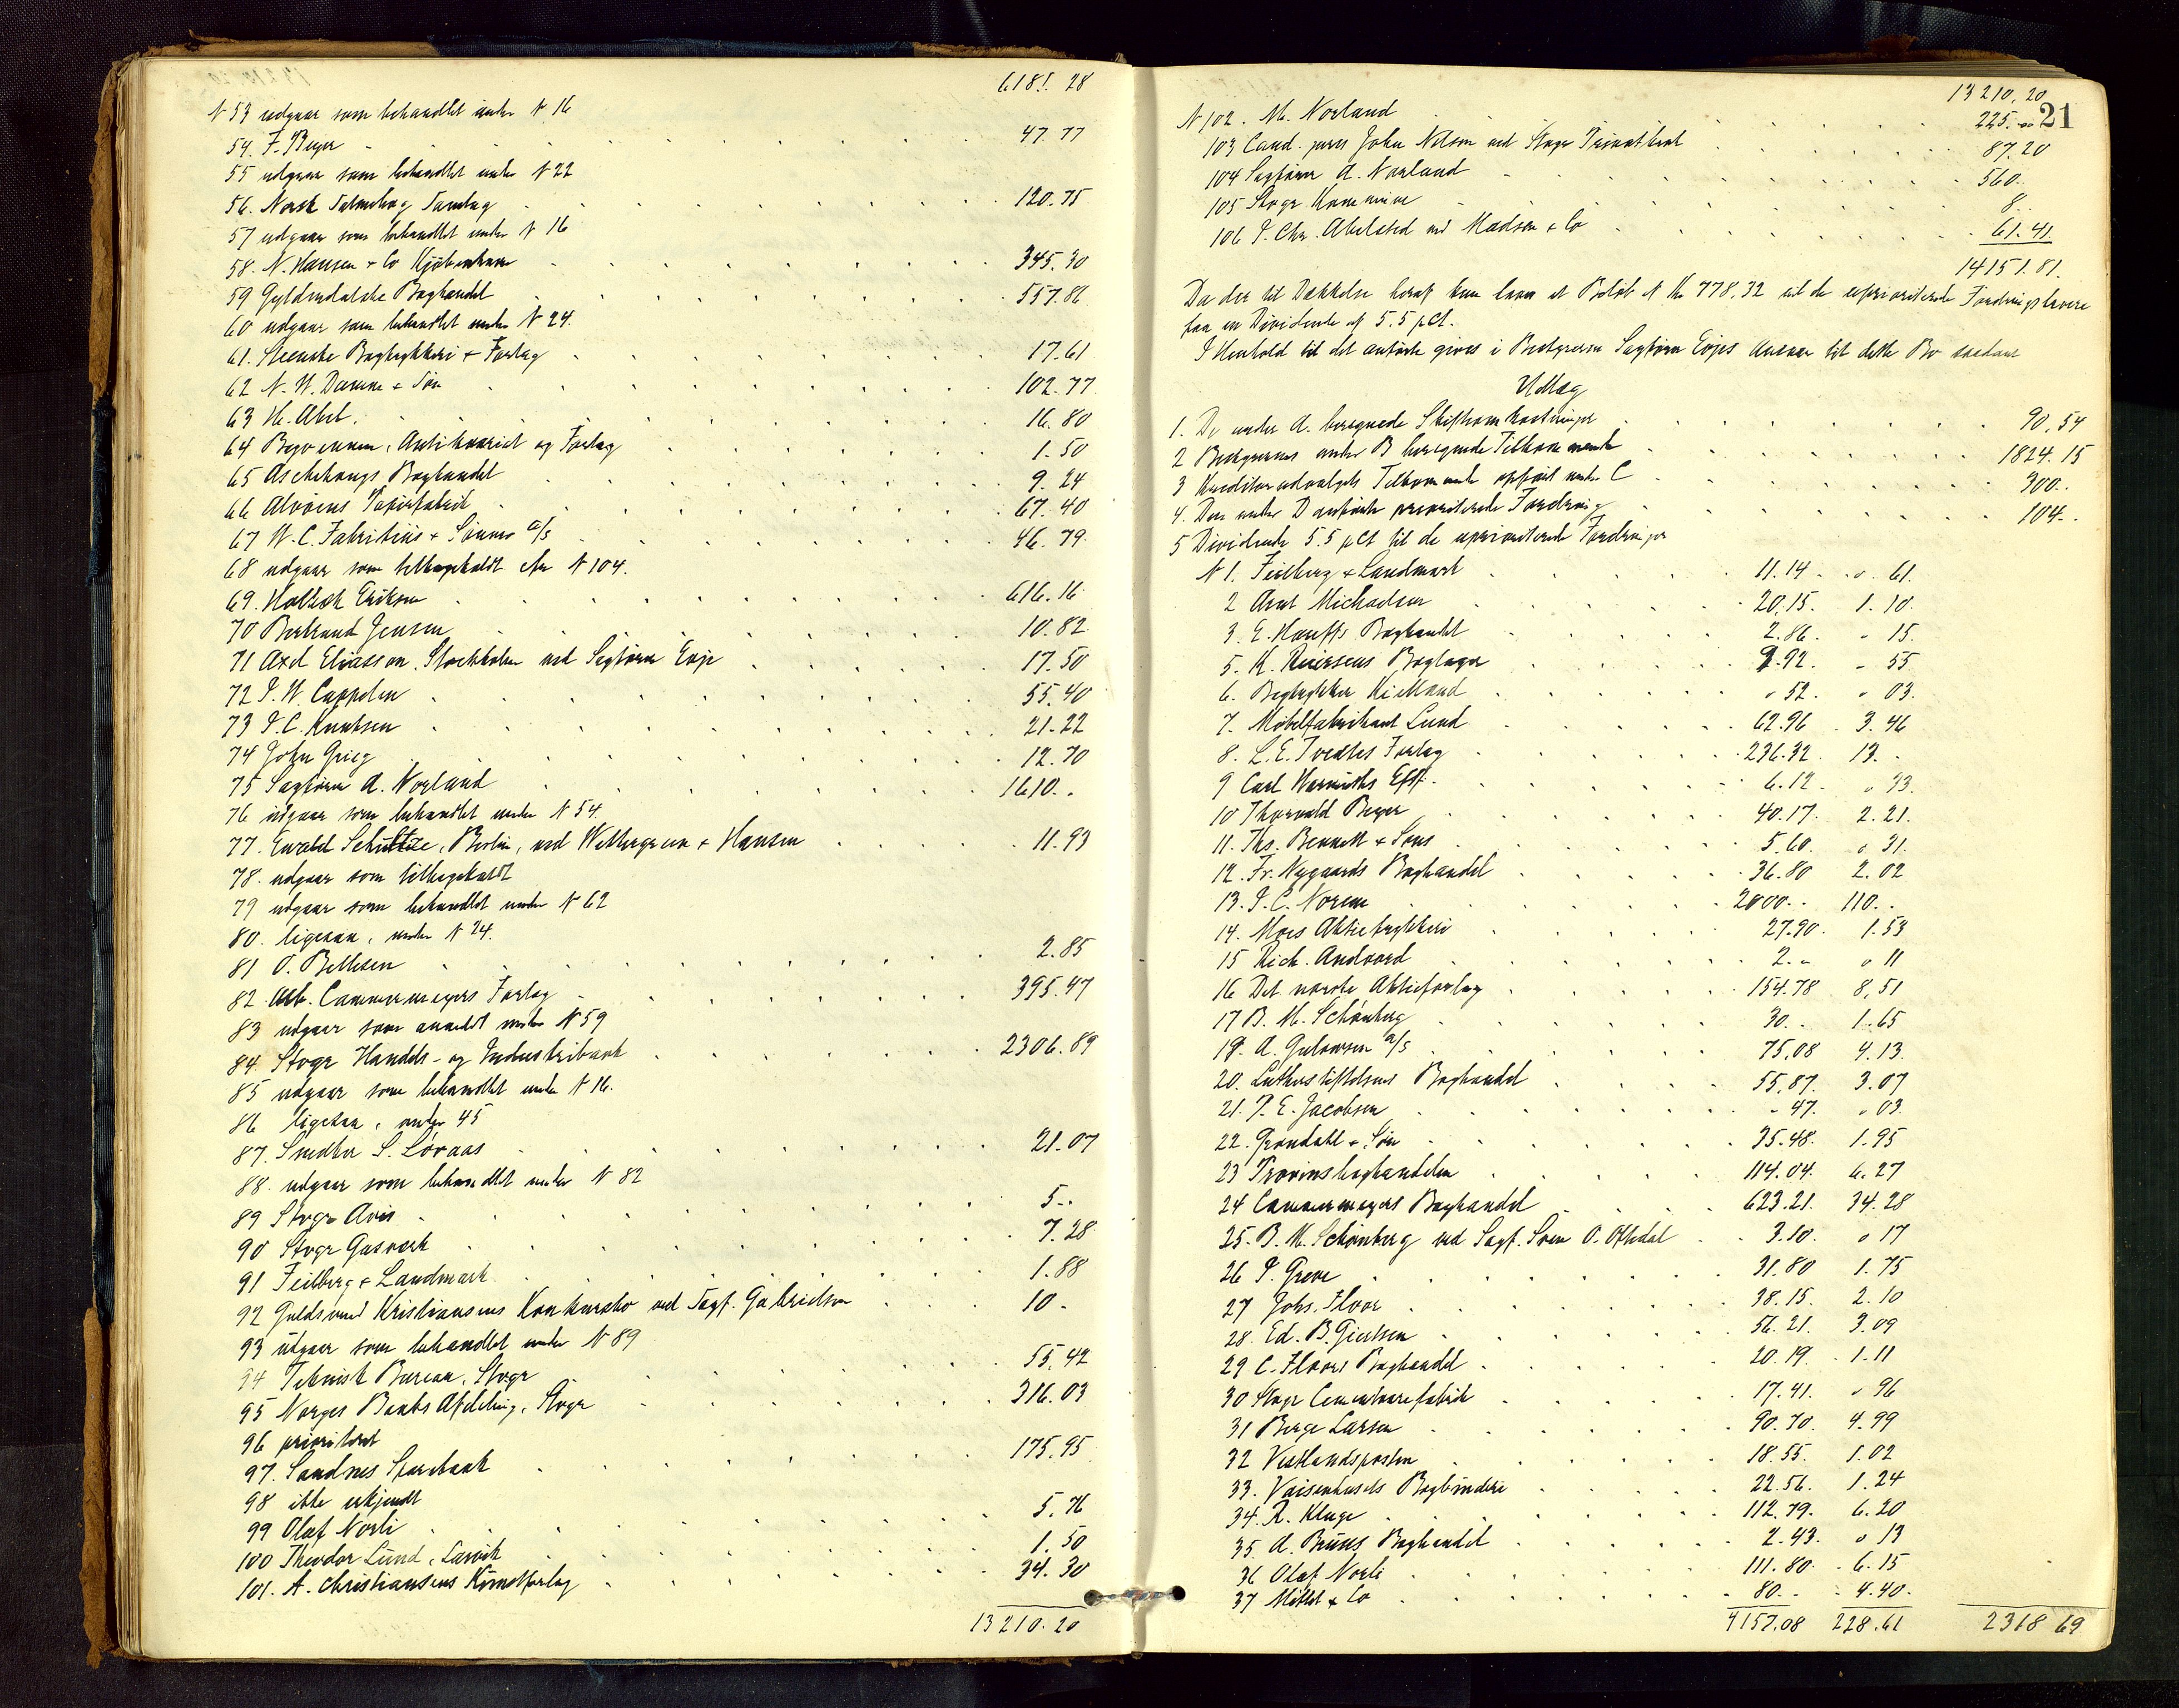 6185. 28
N 53 udgaar som behandlet under N 16
54. F. Beyer 47.77
55 udgaar som behandlet under N 22
56. Norsk Salmebog Samlag 120.75
57 udgaar som behandlet under N 16
58. N. Hansen & Co Kjøbenhavn 345.30
59 Gyldendalske Boghandel 557.86
60 udgaar som behandlet under N 24.
61. Steenske Bogtrykkeri & Forlag 17.61
62 N. W. Damm & Søn 102.77
63 H. Abel. 16.80
64 Bogvennen, Antikvariat og Forlag 1.50
65 Aschehougs Boghandel 9.24
66 Alvøens Papirfabrik 67.40
67 W. C. Fabritius & Sønner a/s 46.79
68 udgaar som tilbagekaldt efter N 104.
69. Holbæk Eriksen 616.16
70 Bertrand Jensen 10.82
71 Axel Eliasson, Stockholm ved Sagfører Eoje 17.50
72 J. W. Cappelen 55.40
73 J. C. Knutsen 21.22
74 John Grieg 12.70
75 Sagfører A. Norland 1610..
76 udgaar som behandlet under N 54.
77. Ewald Schultze, Berlin, ved Wettergreen & Hansen 11.93
78. udgaar som tilbagekaldt
79 udgaar som behandlet under N 62
80. ligesaa, under N 24.
81 O. Bellesen 2.85
82. Alb. Cammermeyers Forlag 395.47
83 udgaar som anmeldt under N 59
84. Stvgr Handels- og Industribank 2306.89
85 udgaar som behandlet under N 16.
86 ligesaa, under 45
87. Snedker S. Løvaas 21.07
88. udgaar som behandlet under N 82
89 Stvgr Avis 5..
90 Stvgr Gasværk 7.28
91 Feilberg & Landmark 1.88
92 Guldsmed Kristiansens Konkursbo ved Sagf. Gabrielsen 10.
93 udgaar som behandlet under N 89
94 Teknisk Bureau, Stvgr 55.42
95 Norges Banks Afdeling, Stvgr 316.03
96 prioriteret
97. Sandnes Sparebank 175.95
98 ikke erkjendt
99 Olaf Norli 5.76
100 Theodor Lund, Larvik 1.50
101. A. Christiansens Kunstforlag 34.30
13210.20
13210,20
21
N 102. M. Norland 225.
103 Cand. juris John Nilsen ved Stvgr Privatbank 87.20
104 Sagfører A. Norland 560.
105 Stvgr Kommune 8
106 J. Chr. Abelsted ved Madsen & Co 61.41
14151.81.
Da der til Dækkelse heraf kun haves et Beløb af Kr 778.32 vil de uprioriterede Fordringshavere
faa en Dividende af 5.5 pCt.
I Henhold til det anførte gives i Bestyreren Sagfører Eojes Ansvar til dette Bo saadant
Udlæg
1. De under A. beregnede Skifteomkostninger 90,54
2 Bestyrerens under B beregnede Tilkommende 1824.15
3 Kreditorudvalgets Tilkommende opført under C 300..
4. Den under D anførte prioriterede Fordring 104..
5 Dividende 5.5 pCt til de uprioriterede Fordringer
N 1. Feilberg & Landmark 11.14 " 61.
2 Arnt Michaelsen 20.15. 1.10.
3. E. Hauffs Boghandel 2.86. " 15.
5. K. Reiersens Boglager 9.92. " 55
6. Bogtrykker Kielland " 52. " 03.
7. Møbelfabrikant Lund 62.96 3.46
8. L. E. Tvedtes Forlag 236.32 13.
9 Carl Warmuths Eff. 6.12. " 33.
10 Thorvald Beyer 40.17. 2.21.
11. Ths. Bennett & Sons 5.60. " 31.
12. Fr. Nygaards Boghandel 36.80 2.02
13. J. C. Norem 2000.. 110..
14. Moss Aktietrykkeri 27.90. 1.53
15 Rich. Andvord 2.. " 11
16 Det norske Aktieforlag 154.78 8,51
17 B. M. Schønberg 30.. 1.65
19. A. Gulowsen a/s 75,08 4.13.
20. Lutherstiftelsens Boghandel 55,87. 3.07
21. P. E. Jacobsen " 47. " 03.
22. Grøndahl & Søn 35.48. 1.95
23 Provinsboghandelen 114.04. 6.27
24 Cammermeyers Boghandel 623.21. 34.28
25. B. M. Schønberg ved Sagf. Sven O. Oftedal 3.10. " 17
26 J. Greve 31.80 1.75
27 Johs. Floor 38.15. 2.10
28. Ed. B. Giertsen 56.21. 3.09
29 C. Floors Boghandel 20.19. 1.11
30 Stvgr Cementvarefabrik 17.41. " 96
31 Berge Larsen 90.70. 4.99
32 Vestlandsposten 18.55. 1.02
33. Vaisenhusets Bogbinderi 22.56. 1.24
34. R. Kluge 112.79. 6.20
35. A. Bruns Boghandel 2.43. " 13
36 Olaf Norli 111.80. 6.15
37 Mittet & Co 80.. 4.40.
4157.08 228.61 2318 69